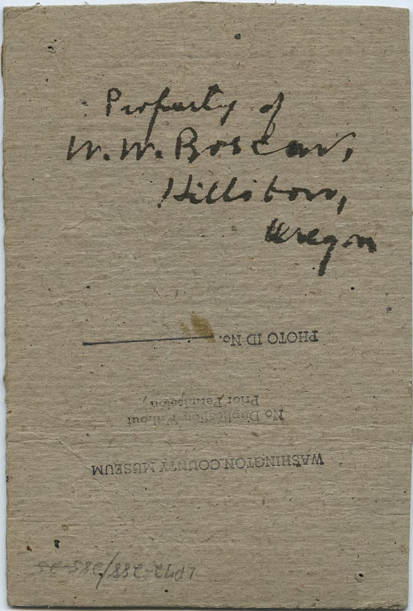 Property of
W. W. Boscow,
Hillsboro,
Oregon
PHOTO ID No.
No Duplication Without
Prior Permission,
WASHINGTON COUNTY MUSEUM
LP72-288/285-25